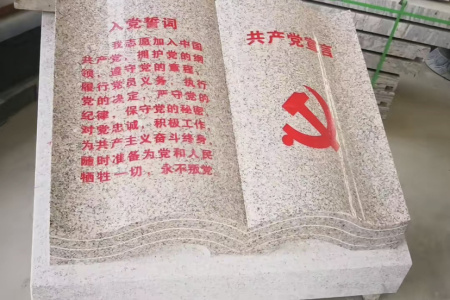 入党誓词
我志愿加入中国
共产党，拥护党的纲
领，遵守党的章程，
履行党员义务，执行
党的决定，严守党的
纪律，保守党的秘密，
对党忠诚，积极工作，
为共产主义奋斗终身，
随时准备为党和人民
牺牲一切，永不叛党
共产党宣言